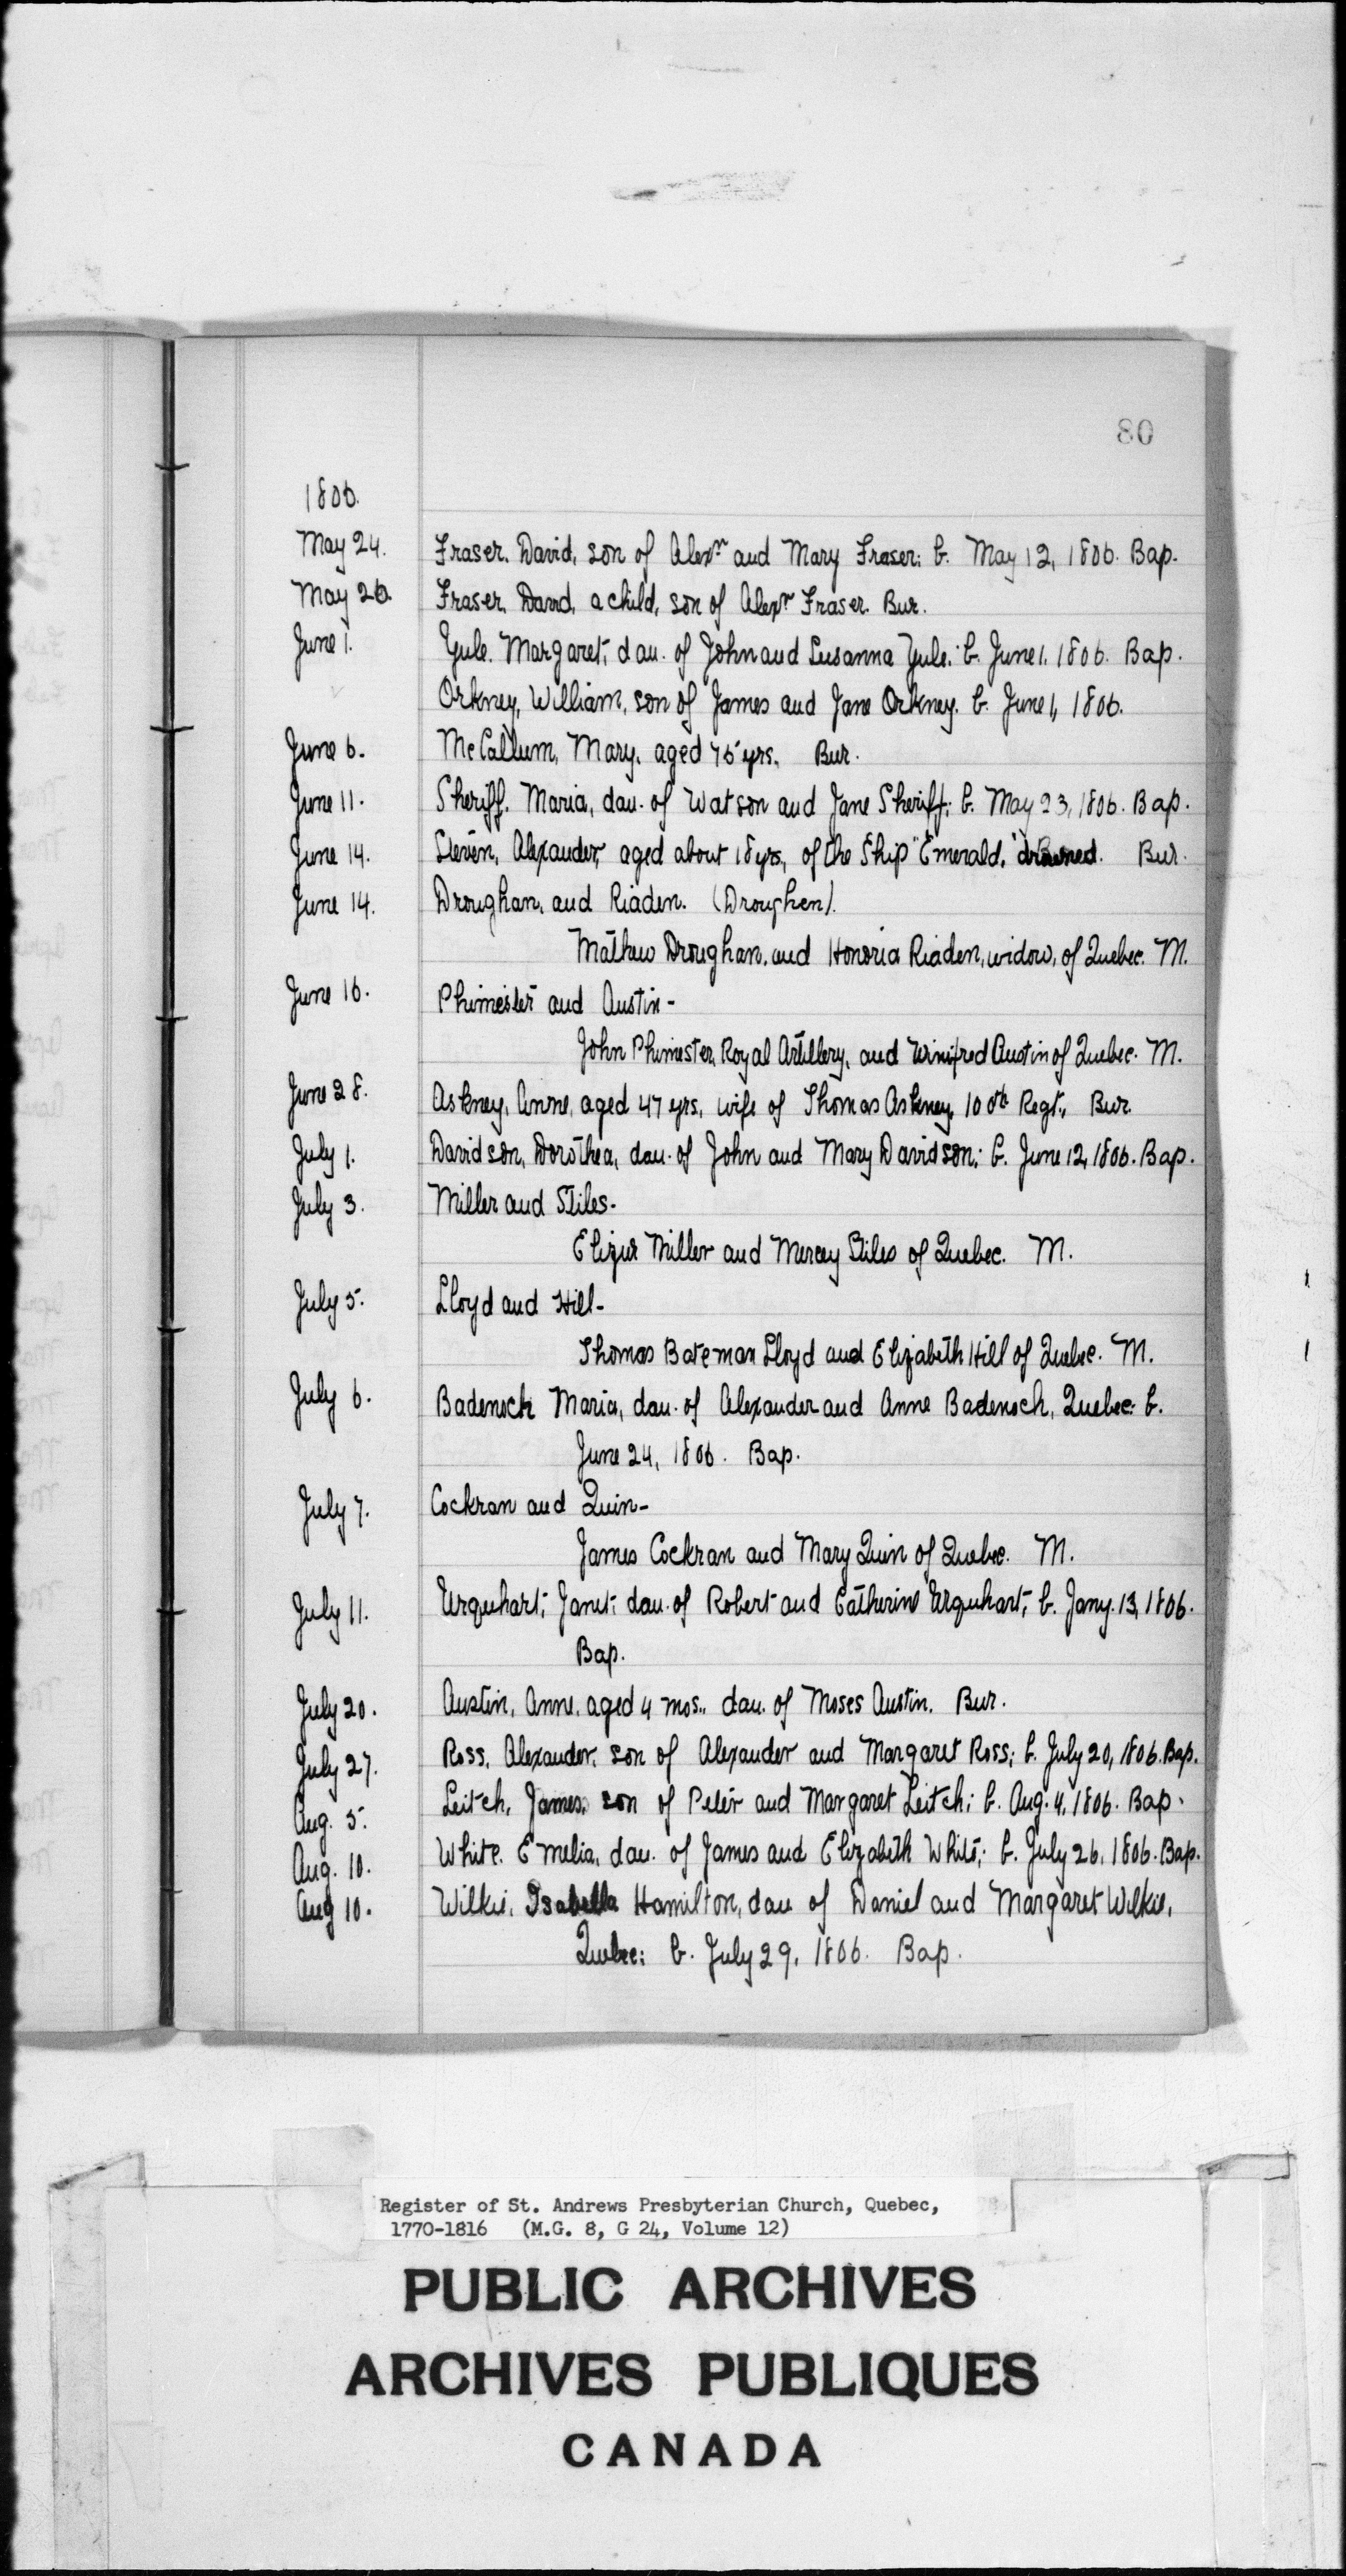 80
1806.
May 24. Fraser, David, son of Alexr and Mary Fraser; b. May 12, 1806. Bap.
May 26. Fraser, David, a child, son of Alexr Fraser. Bur.
June 1. Yule, Margaret, dau. of John and Susanna Yule; b. June 1, 1806. Bap.
Orkney, William, son of James and Jane Orkney. b. June 1, 1806.
June 6. McCallum, Mary, aged 75 yrs. Bur.
June 11. Sheriff, Maria, dau. of Watson and Jane Sheriff; b. May 23, 1806. Bap.
June 14. Steven, Alexander, aged about 18 yrs, of the Ship "Emerald," drowned. Bur.
June 14. Droughan, and Riaden. (Droughen).
Mathew Droughan, and Honoria Riaden, widow, of Quebec. M.
June 16. Phimester and Austin-
John Phimester, Royal Artillery, and Winifred Austin of Quebec. M.
June 28. Askney, Anne, aged 47 yrs, wife of Thomas Askney, 100th Regt., Bur.
July 1. Davidson, Dorothea, dau. of John and Mary Davidson; b. June 12, 1806. Bap.
July 3. Miller and Stiles-
Elizur Miller and Mercey Stiles of Quebec. M.
July 5. Lloyd and Hill-
Thomas Bateman Lloyd and Elizabeth Hill of Quebec. M.
July 6. Badenoch Maria, dau. of Alexander and Anne Badenoch, Quebec; b.
June 24, 1806. Bap.
July 7. Cockran and Quin-
James Cockran and Mary Quin of Quebec. M.
July 11. Urquhart, Janet, dau. of Robert and Catherine Urquhart, b. Jany. 13, 1806.
Bap.
July 20. Austin, Anne, aged 4 mos., dau. of Moses Austin. Bur.
July 27. Ross, Alexander, son of Alexander and Margaret Ross; b. July 20, 1806. Bap.
Aug. 5. Leitch, James, son of Peter and Margaret Leitch; b. Aug. 4, 1806. Bap.
Aug. 10. White, Emelia, dau. of James and Elizabeth White; b. July 26, 1806. Bap.
Aug 10. Wilkie, Isabella Hamilton, dau of Daniel and Margaret Wilkie,
Quebec; b. July 29, 1806. Bap.
Register of St. Andrews Presbyterian Church, Quebec,
1770-1816 (M.G. 8, G 24, Volume 12)
PUBLIC ARCHIVES
ARCHIVES PUBLIQUES
CANADA